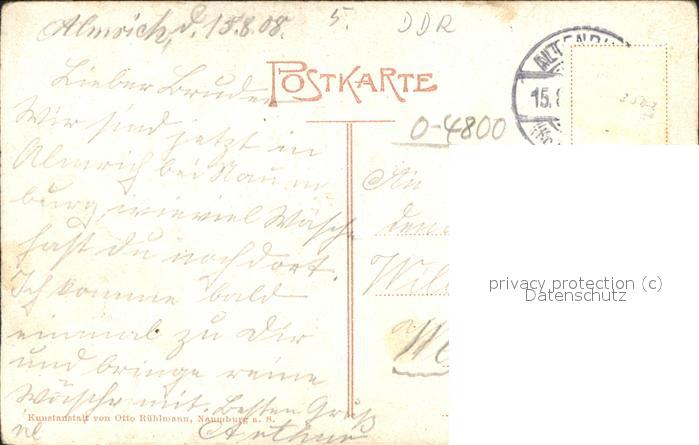 Almrich, d. 15.8.08.
5.
DDR
Lieber Bruder
POSTKARTE
15.8
3502
0-4800
Wir sind jetzt in
Almrich bei Naum
burg, wieviel Wäsche
hast du noch dort.
Ich komme bald
einmal zu Dir
und bringe reine
Wäsche mit. Besten Gruß
Arthur
An
den
privacy protection (c)
Datenschutz
Kunstanstalt von Otto Rühlmann, Naumburg a. S.